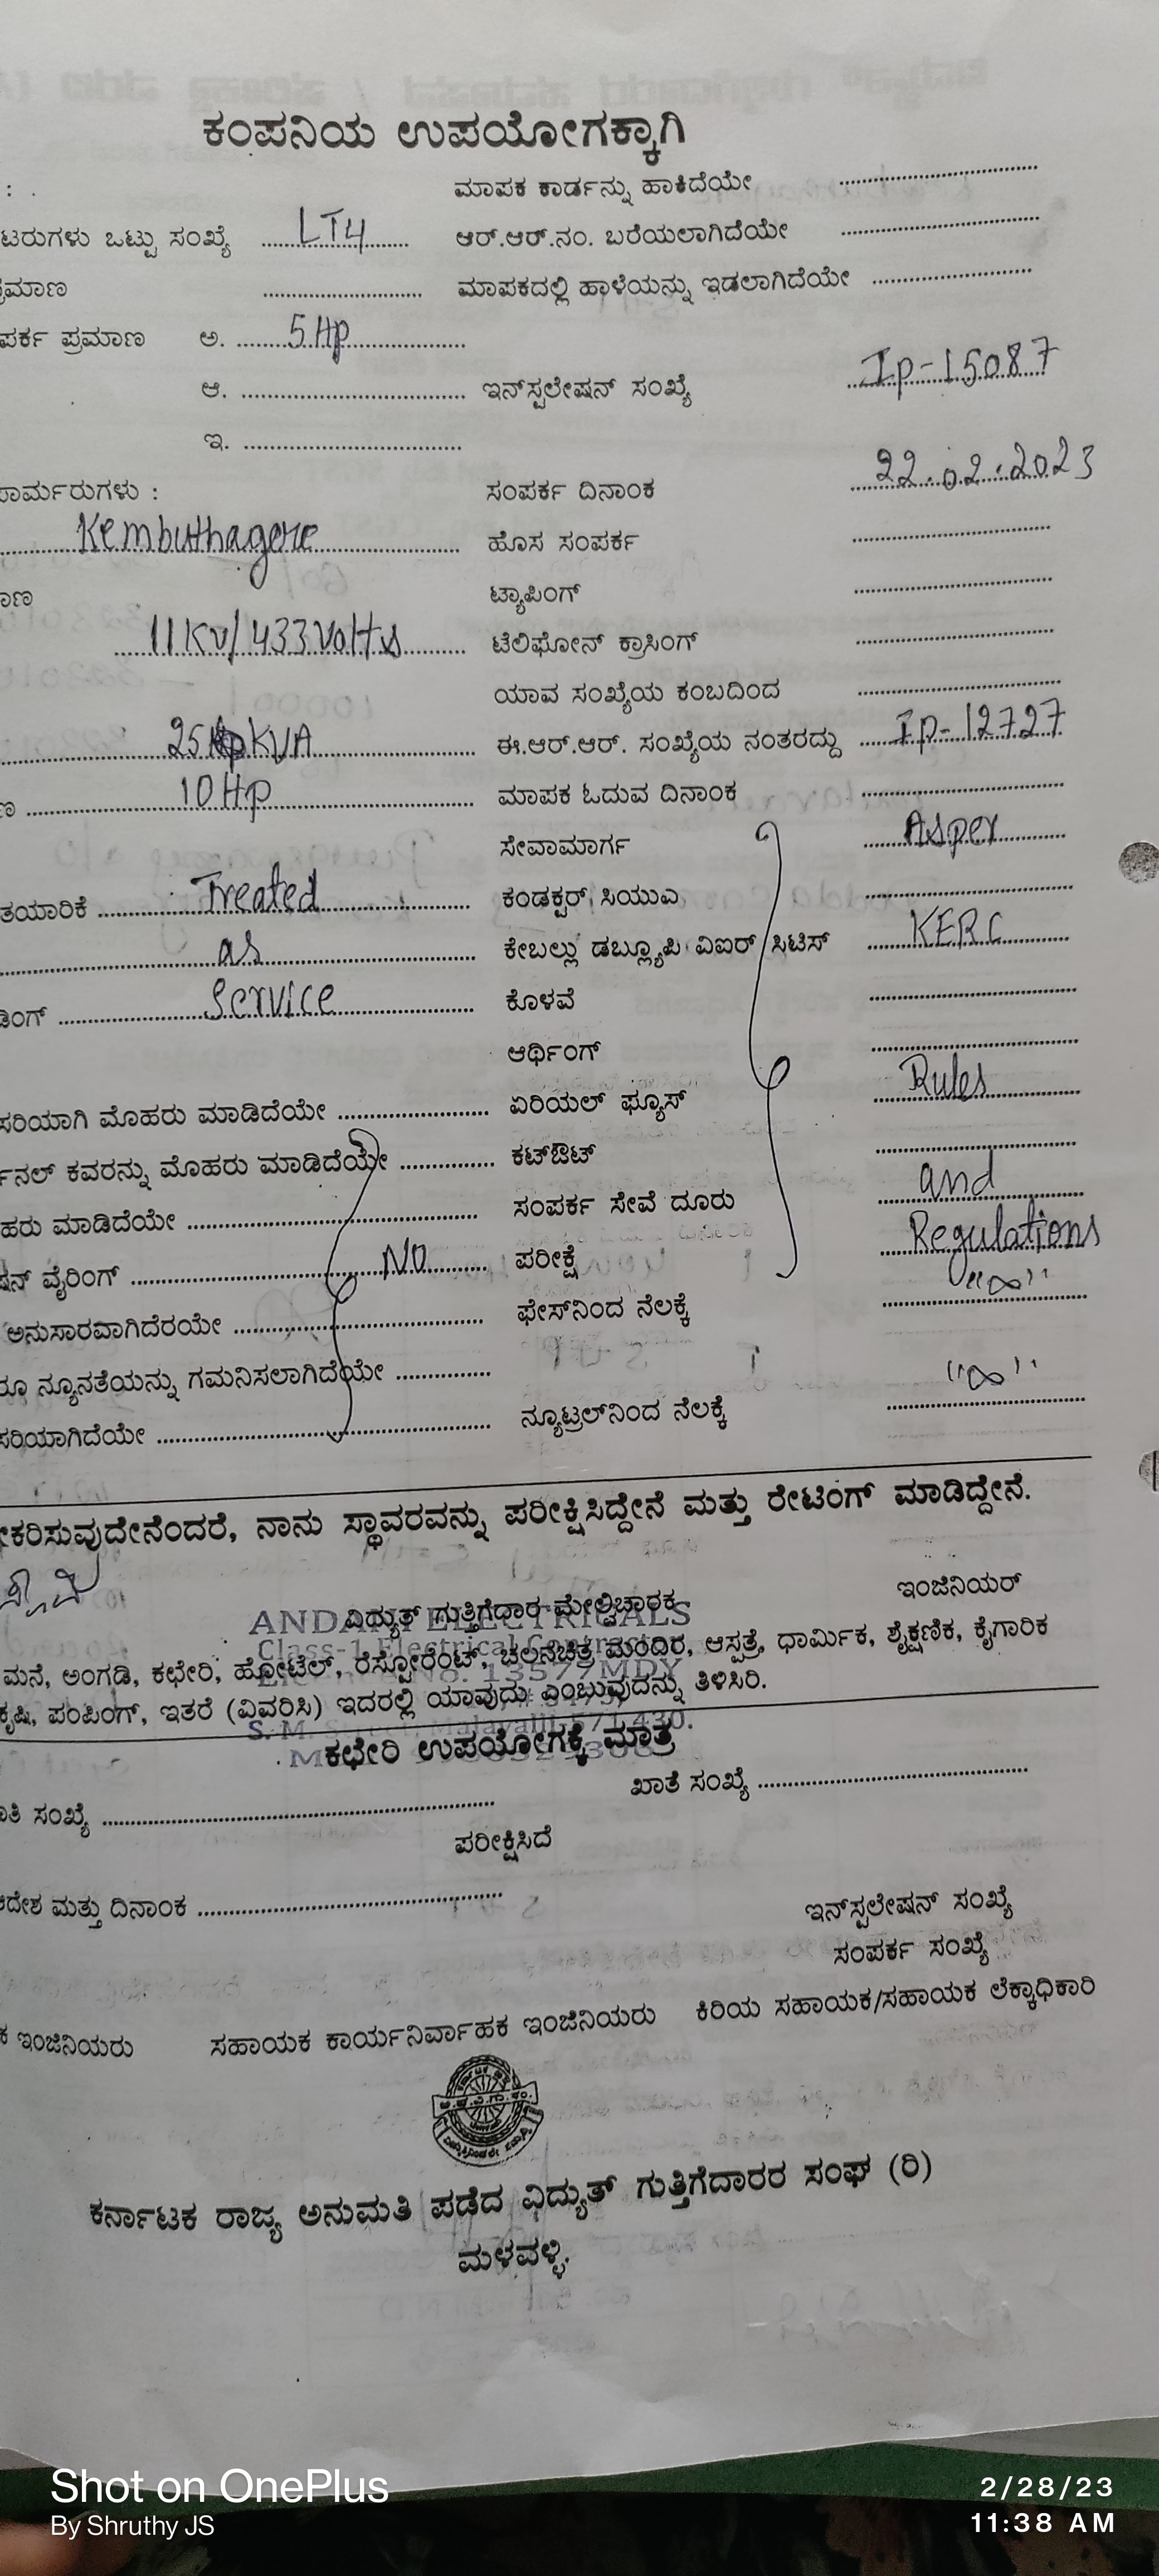 ಕಂಪನಿಯ ಉಪಯೋಗಕ್ಕಾಗಿ
: . ಮಾಪಕ ಕಾರ್ಡನ್ನು ಹಾಕಿದೆಯೇ
ಟರುಗಳು ಒಟ್ಟು ಸಂಖ್ಯೆ LT4 ಆರ್.ಆರ್.ನಂ. ಬರೆಯಲಾಗಿದೆಯೇ
ಪ್ರಮಾಣ ಮಾಪಕದಲ್ಲಿ ಹಾಳೆಯನ್ನು ಇಡಲಾಗಿದೆಯೇ
ಪರ್ಕ ಪ್ರಮಾಣ ಅ. 5 Hp
ಆ. ಇನ್‌ಸ್ಟಲೇಷನ್ ಸಂಖ್ಯೆ Ip-15087
ಇ.
ಫಾರ್ಮರುಗಳು : ಸಂಪರ್ಕ ದಿನಾಂಕ 22.02.2023
Kembuthagere ಹೊಸ ಸಂಪರ್ಕ
ಮಾಣ ಟ್ಯಾಪಿಂಗ್
11KV/433Volts ಟೆಲಿಫೋನ್ ಕ್ರಾಸಿಂಗ್
ಯಾವ ಸಂಖ್ಯೆಯ ಕಂಬದಿಂದ
25 KVA ಈ.ಆರ್.ಆರ್. ಸಂಖ್ಯೆಯ ನಂತರದ್ದು Ip-12727
ಣ 10 Hp ಮಾಪಕ ಓದುವ ದಿನಾಂಕ
ಸೇವಾಮಾರ್ಗ Asper
ತಯಾರಿಕೆ Treated ಕಂಡಕ್ಟರ್ ಸಿಯುಎ
as ಕೇಬಲ್ಲು ಡಬ್ಲ್ಯೂಪಿ ವಿಐರ್ ಸಿಟಿಸ್ KERC
ಡಿಂಗ್ Service ಕೊಳವೆ
ಆರ್ಥಿಂಗ್
ಸರಿಯಾಗಿ ಮೊಹರು ಮಾಡಿದೆಯೇ ಏರಿಯಲ್ ಫ್ಯೂಸ್ Rules
ರ್ನಲ್ ಕವರನ್ನು ಮೊಹರು ಮಾಡಿದೆಯೇ ಕಟ್‌ಔಟ್
ಹರು ಮಾಡಿದೆಯೇ ಸಂಪರ್ಕ ಸೇವೆ ದೂರು and
ಷನ್ ವೈರಿಂಗ್ NO ಪರೀಕ್ಷೆ Regulations
ಅನುಸಾರವಾಗಿದೆರಯೇ ಫೇಸ್‌ನಿಂದ ನೆಲಕ್ಕೆ "∞"
ರೂ ನ್ಯೂನತೆಯನ್ನು ಗಮನಿಸಲಾಗಿದೆಯೇ
ಸರಿಯಾಗಿದೆಯೇ ನ್ಯೂಟ್ರಲ್‌ನಿಂದ ನೆಲಕ್ಕೆ "∞"
ೀಕರಿಸುವುದೇನೆಂದರೆ, ನಾನು ಸ್ಥಾವರವನ್ನು ಪರೀಕ್ಷಿಸಿದ್ದೇನೆ ಮತ್ತು ರೇಟಿಂಗ್ ಮಾಡಿದ್ದೇನೆ.
ಇಂಜಿನಿಯರ್
ವಿದ್ಯುತ್ ಗುತ್ತಿಗೆದಾರ ಮೇಲ್ವಿಚಾರಕ
ELECTRICALS
Class-1 Electrical
ಮನೆ, ಅಂಗಡಿ, ಕಛೇರಿ, ಹೋಟೆಲ್, ರೆಸ್ಟೋರೆಂಟ್, ಚಲನಚಿತ್ರ ಮಂದಿರ, ಆಸ್ಪತ್ರೆ, ಧಾರ್ಮಿಕ, ಶೈಕ್ಷಣಿಕ, ಕೈಗಾರಿಕ
ಕೃಷಿ, ಪಂಪಿಂಗ್, ಇತರೆ (ವಿವರಿಸಿ) ಇದರಲ್ಲಿ ಯಾವುದು ಎಂಬುವುದನ್ನು ತಿಳಿಸಿರಿ.
ಕಛೇರಿ ಉಪಯೋಗಕ್ಕೆ ಮಾತ್ರ
ಸಂಖ್ಯೆ ಖಾತೆ ಸಂಖ್ಯೆ
ಪರೀಕ್ಷಿಸಿದೆ
ಆದೇಶ ಮತ್ತು ದಿನಾಂಕ
ಇನ್‌ಸ್ಟಲೇಷನ್ ಸಂಖ್ಯೆ
ಸಂಪರ್ಕ ಸಂಖ್ಯೆ
ಕ ಇಂಜಿನಿಯರು ಸಹಾಯಕ ಕಾರ್ಯನಿರ್ವಾಹಕ ಇಂಜಿನಿಯರು ಕಿರಿಯ ಸಹಾಯಕ/ಸಹಾಯಕ ಲೆಕ್ಕಾಧಿಕಾರಿ
ಕರ್ನಾಟಕ ರಾಜ್ಯ ಅನುಮತಿ ಪಡೆದ ವಿದ್ಯುತ್ ಗುತ್ತಿಗೆದಾರರ ಸಂಘ (ರಿ)
ಮಳವಳ್ಳಿ.
Shot on OnePlus
By Shruthy JS
2/28/23
11:38 AM